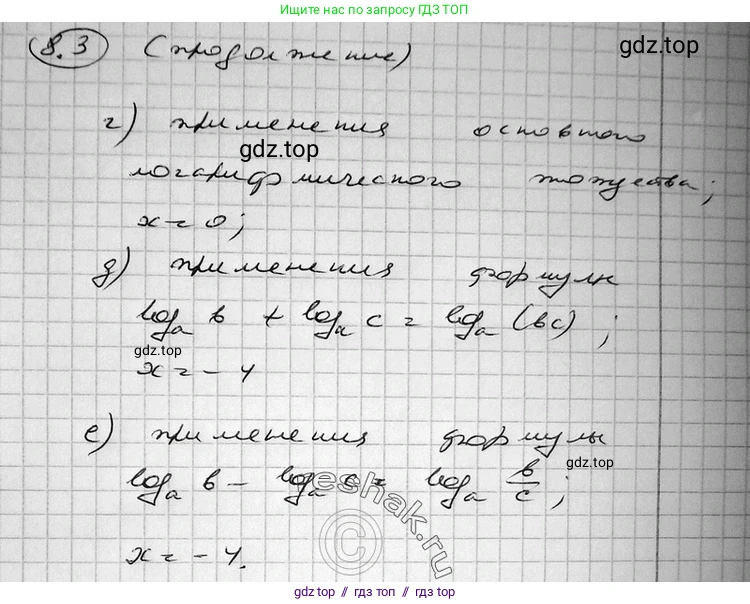 Ищите ответы по запросу ГДЗ ТОП
8.3 (продолжение)
gdz.top
г) применения основного
gdz.top
логарифмического тождества;
x = 0;
д) применения формулы
logₐ b + logₐ c = logₐ (bc);
gdz.top
x = -4
е) применения формулы
gdz.top
logₐ b - logₐ c = logₐ b/c;
reshak.ru
©
x = -4.
gdz.top // гдз.топ // гдз.top